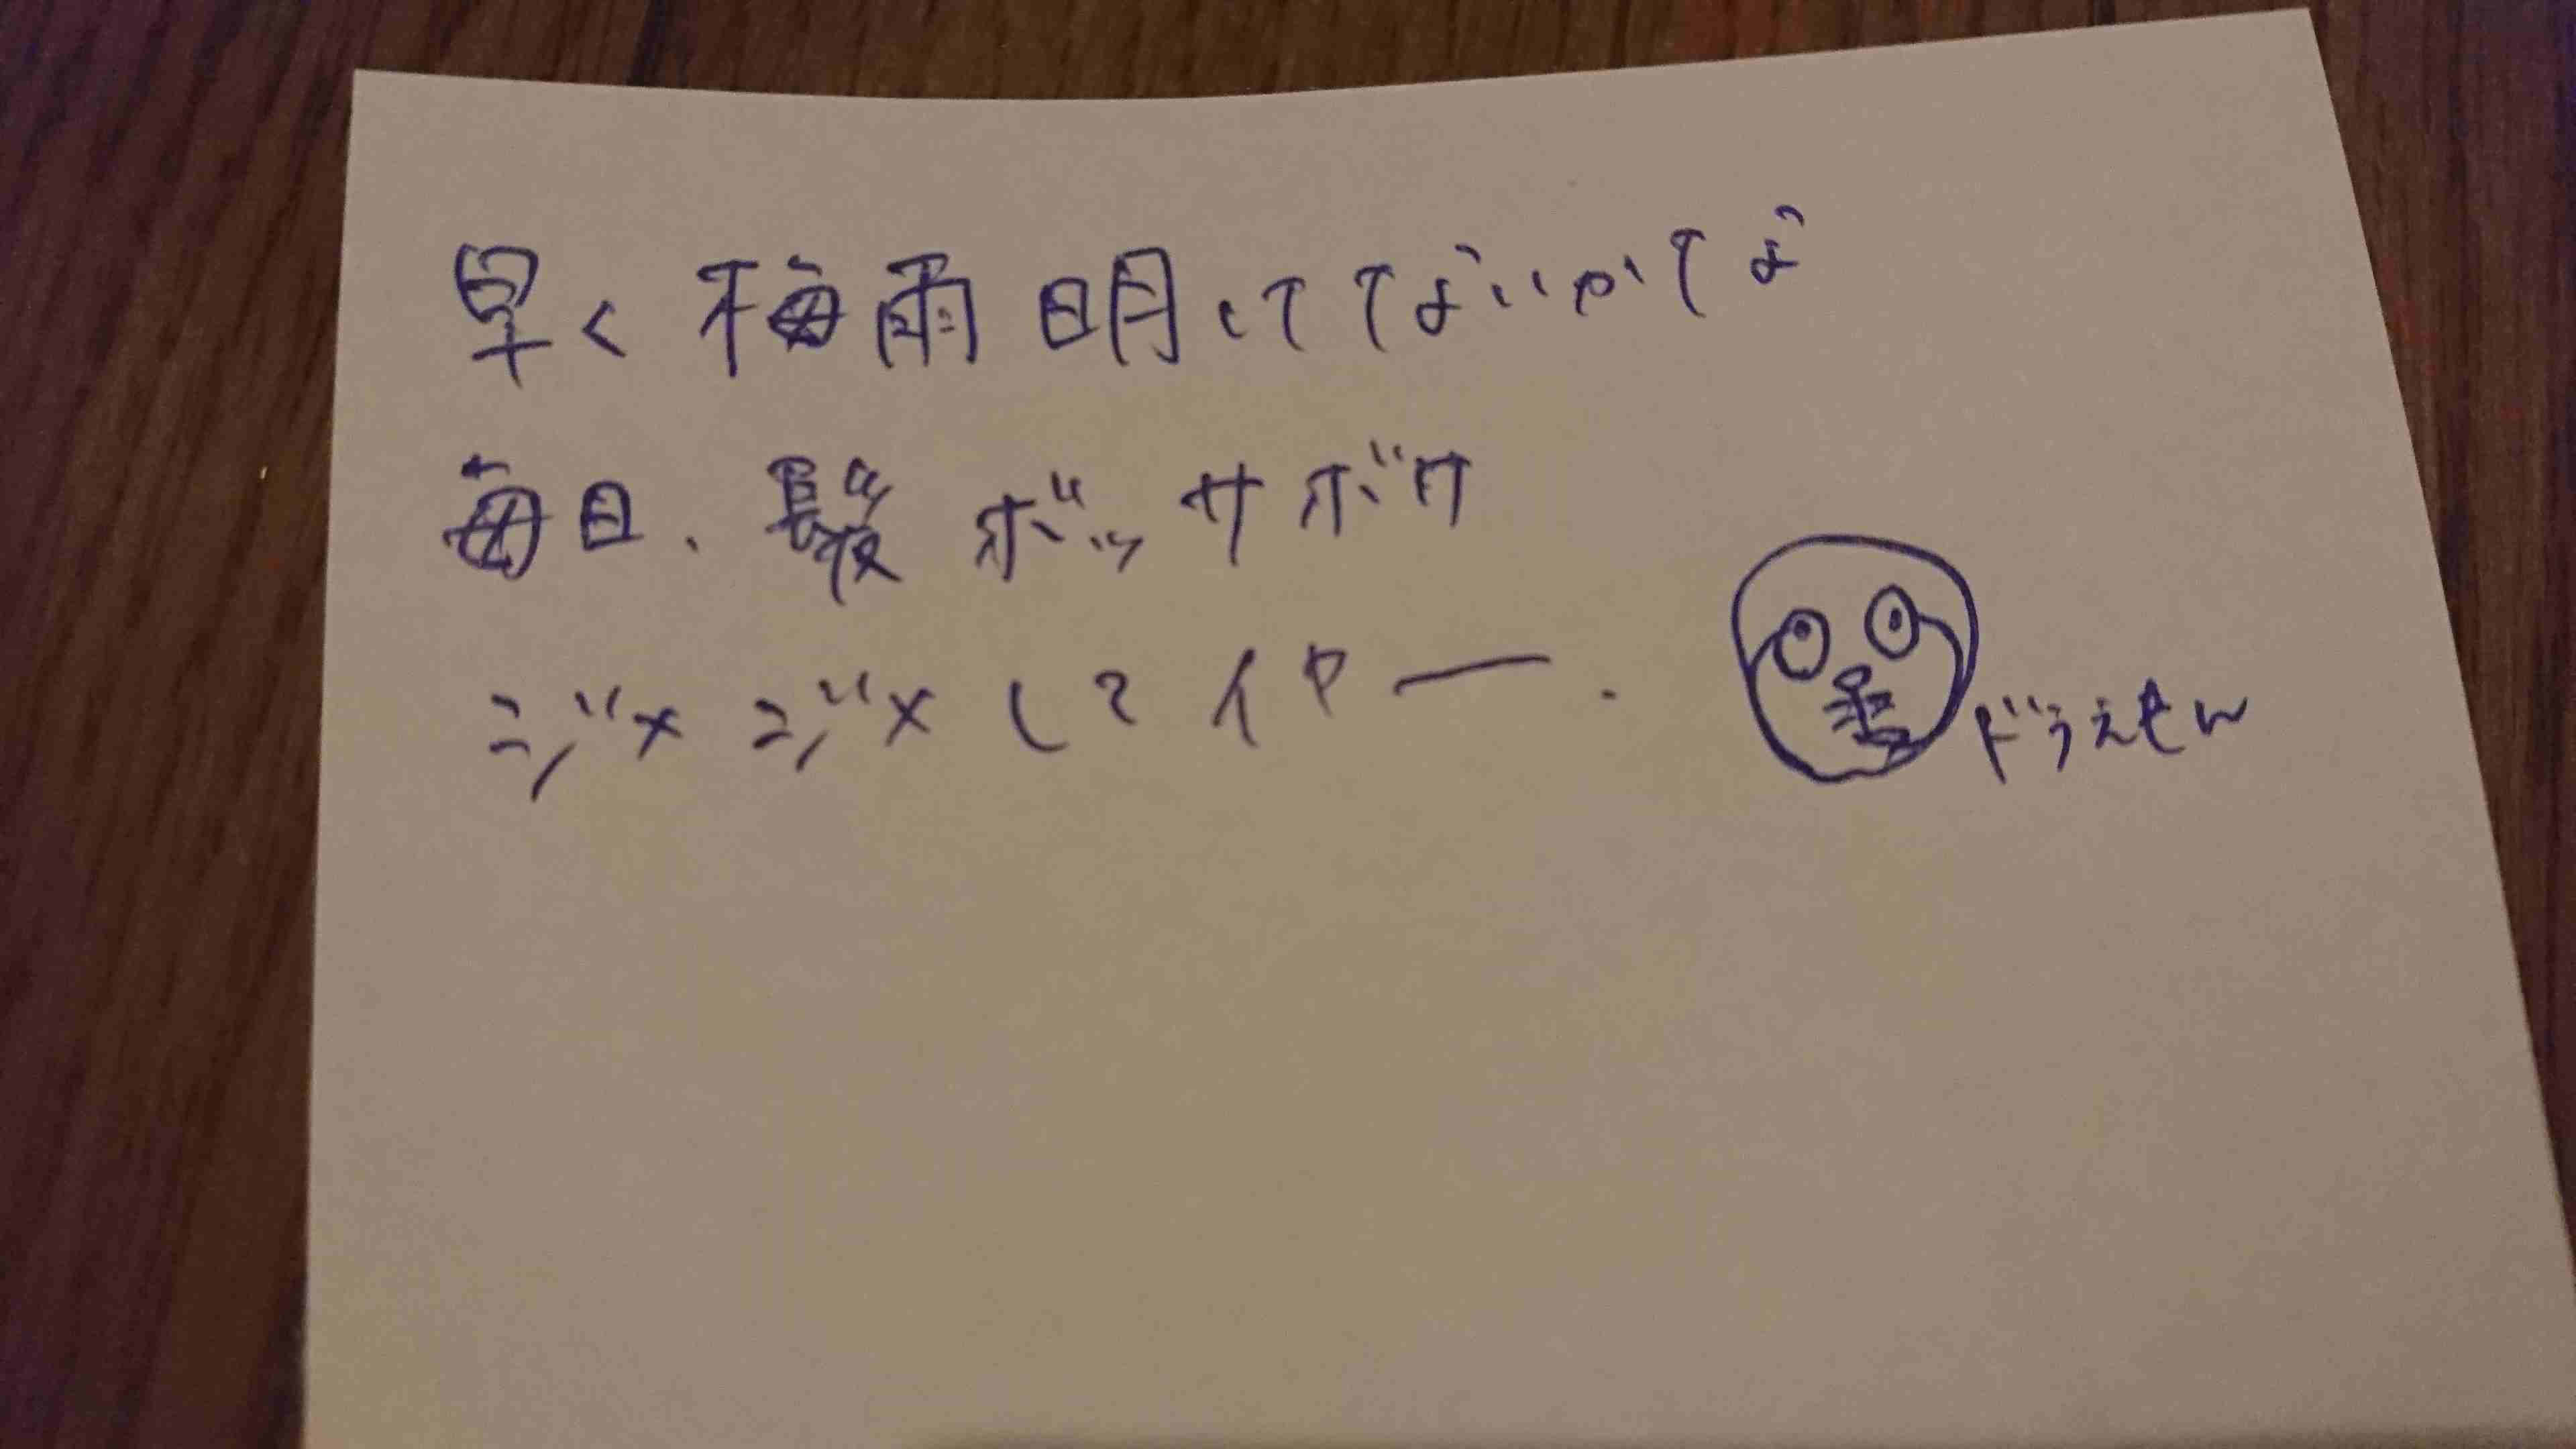 早く梅雨明けてないかなな
毎日、髪ボッサボサ
ジメジメしてイヤー.
ドラえもん